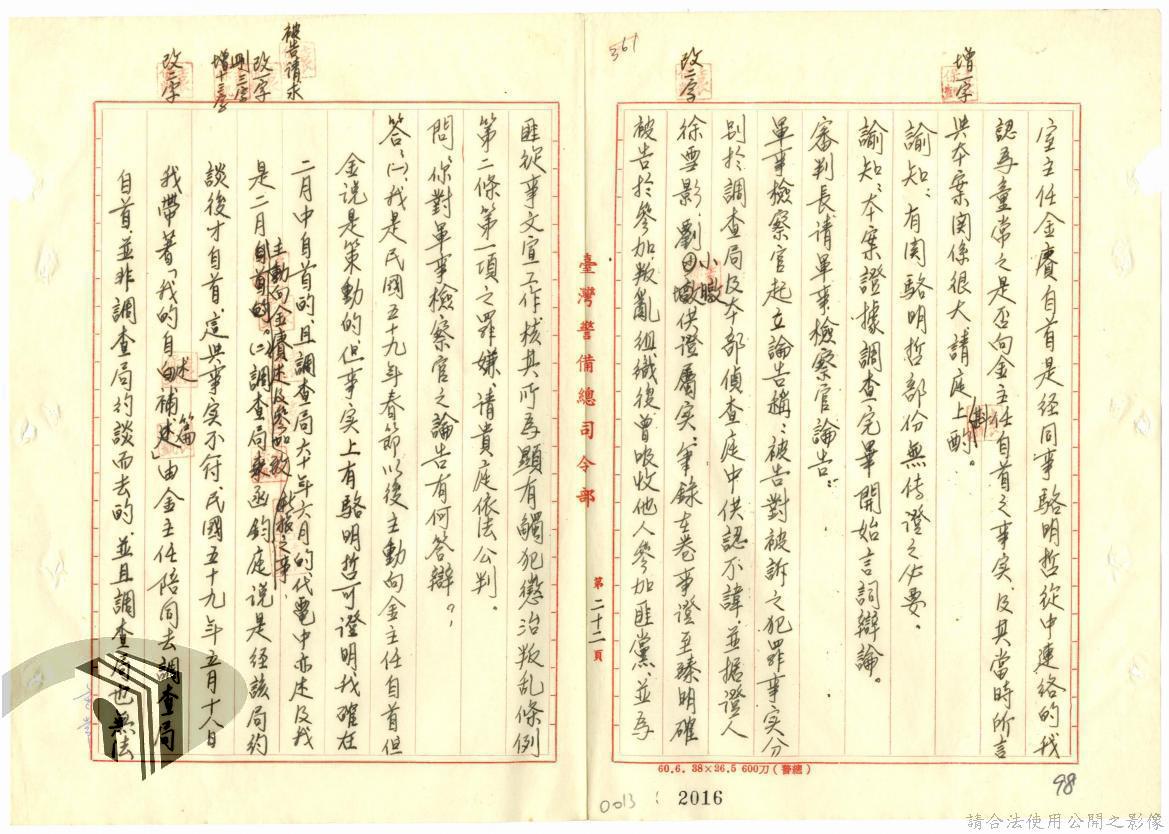 361
98
增一字
改二字
室主任金賡自首是经同事駱明哲從中連絡的我
認為童常之是否向金主任自首之事实及其當時所言
與本案関係很大請庭上酌。
諭知：有関駱明哲部份無传證之必要。
諭知：本案證據調查完畢開始言詞辯論。
審判長请軍事檢察官論告：
軍事檢察官起立論告稱：被告對被訴之犯罪事实分
别於調查局及本部偵查庭中供認不諱並据證人
徐雪影、劉小暾供證屬实筆錄在卷事證至臻明確
被告於參加叛亂組織後曾吸收他人參加匪黨並為
臺灣警備總司令部
第二十二頁
被告請求
改一字
刪三字
增十三字
改二字
匪從事文宣工作核其所為顯有觸犯懲治叛乱條例
第二條第一項之罪嫌請貴庭依法公判。
問：你對軍事檢察官之論告有何答辯？
答：㈠我是民國五十九年春節以後主動向金主任自首但
金说是策動的但事实上有駱明哲可證明我確在
二月中自首的且調查局六十年六月的代電中亦述及我
是二月主動向金賡述及參加叛乱組織之事。㈡調查局来函鈞庭说是经該局约
談後才自首這與事实不符民國五十九年五月十八日
我帶著「我的自述補篇」由金主任陪同去調查局
自首並非調查局约談而去的並且調查局也無法
60.6. 38×26.5 600刀(警總)
0013
2016
請合法使用公開之影像